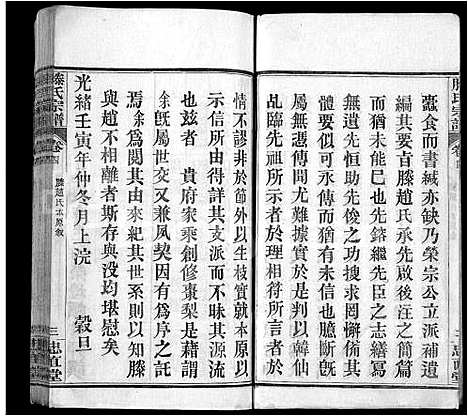 滕氏宗譜
蠹食而書緘亦缺乃榮宗公立派補遺
編其要直滕趙氏承先啟後汪之簡篇
猶有未能巳也先鎔繼先臣之志繕寫
無遺先恒助先長傳之罔懈備其事者
愉而有信矣不可久傳而使人也膽斷而
屬無憑後聞尤難據實於是其卽以輪
乩於先祖所示者於理相符所言於
情不謬非於節外以生枝衹就本原以
示信所由得詳其支派而不昧其源流
也茲者 貴府家乘創修棗梨是藉謂
余旣屬世交又兼夙契因有為序之託
焉余爲閱其由來紀其世系則以知滕
與趙不相離者斯存與没均堪慰矣
光緒壬寅年仲冬月上浣 穀旦
滕氏宗譜
卷四
滕趙氏本原敘
三
忠直堂